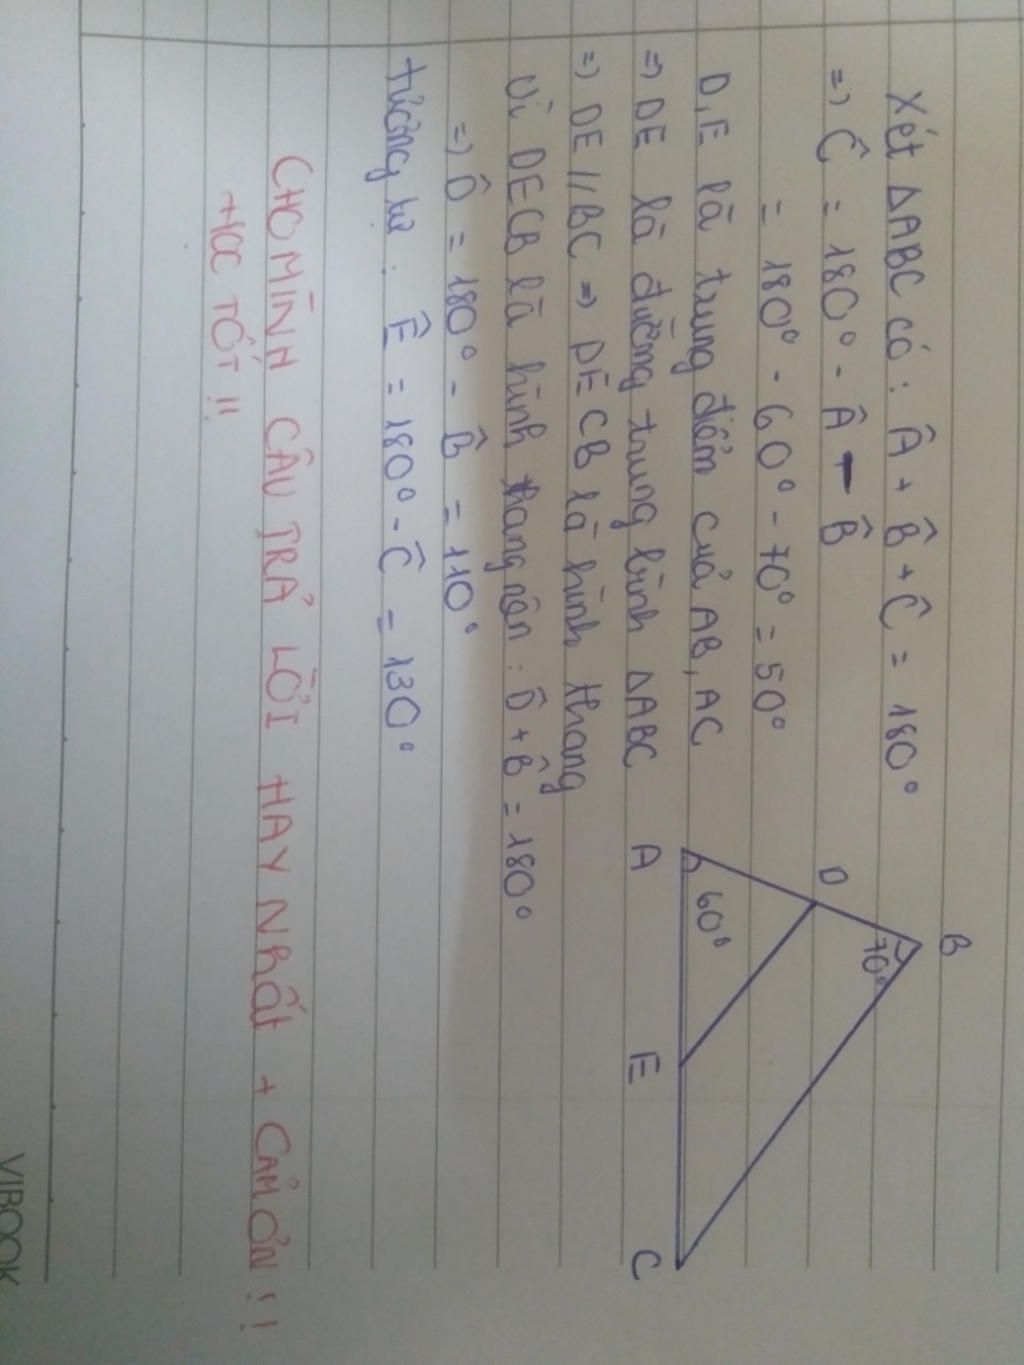 Xét ΔABC có: Â + B̂ + Ĉ = 180°
=> Ĉ = 180° - Â - B̂
= 180° - 60° - 70° = 50°
D, E là trung điểm của AB, AC
=> DE là đường trung bình ΔABC
=> DE // BC => DECB là hình thang
Vì DECB là hình thang nên: D̂ + B̂ = 180°
=> D̂ = 180° - B̂ = 110°
tương tự: Ê = 180° - Ĉ = 130°
CHO MÌNH CÂU TRẢ LỜI HAY NHẤT + CẢM ƠN!!
+HỌC TỐT!!
B
70°
D
A
60°
E
C
VIBOOK